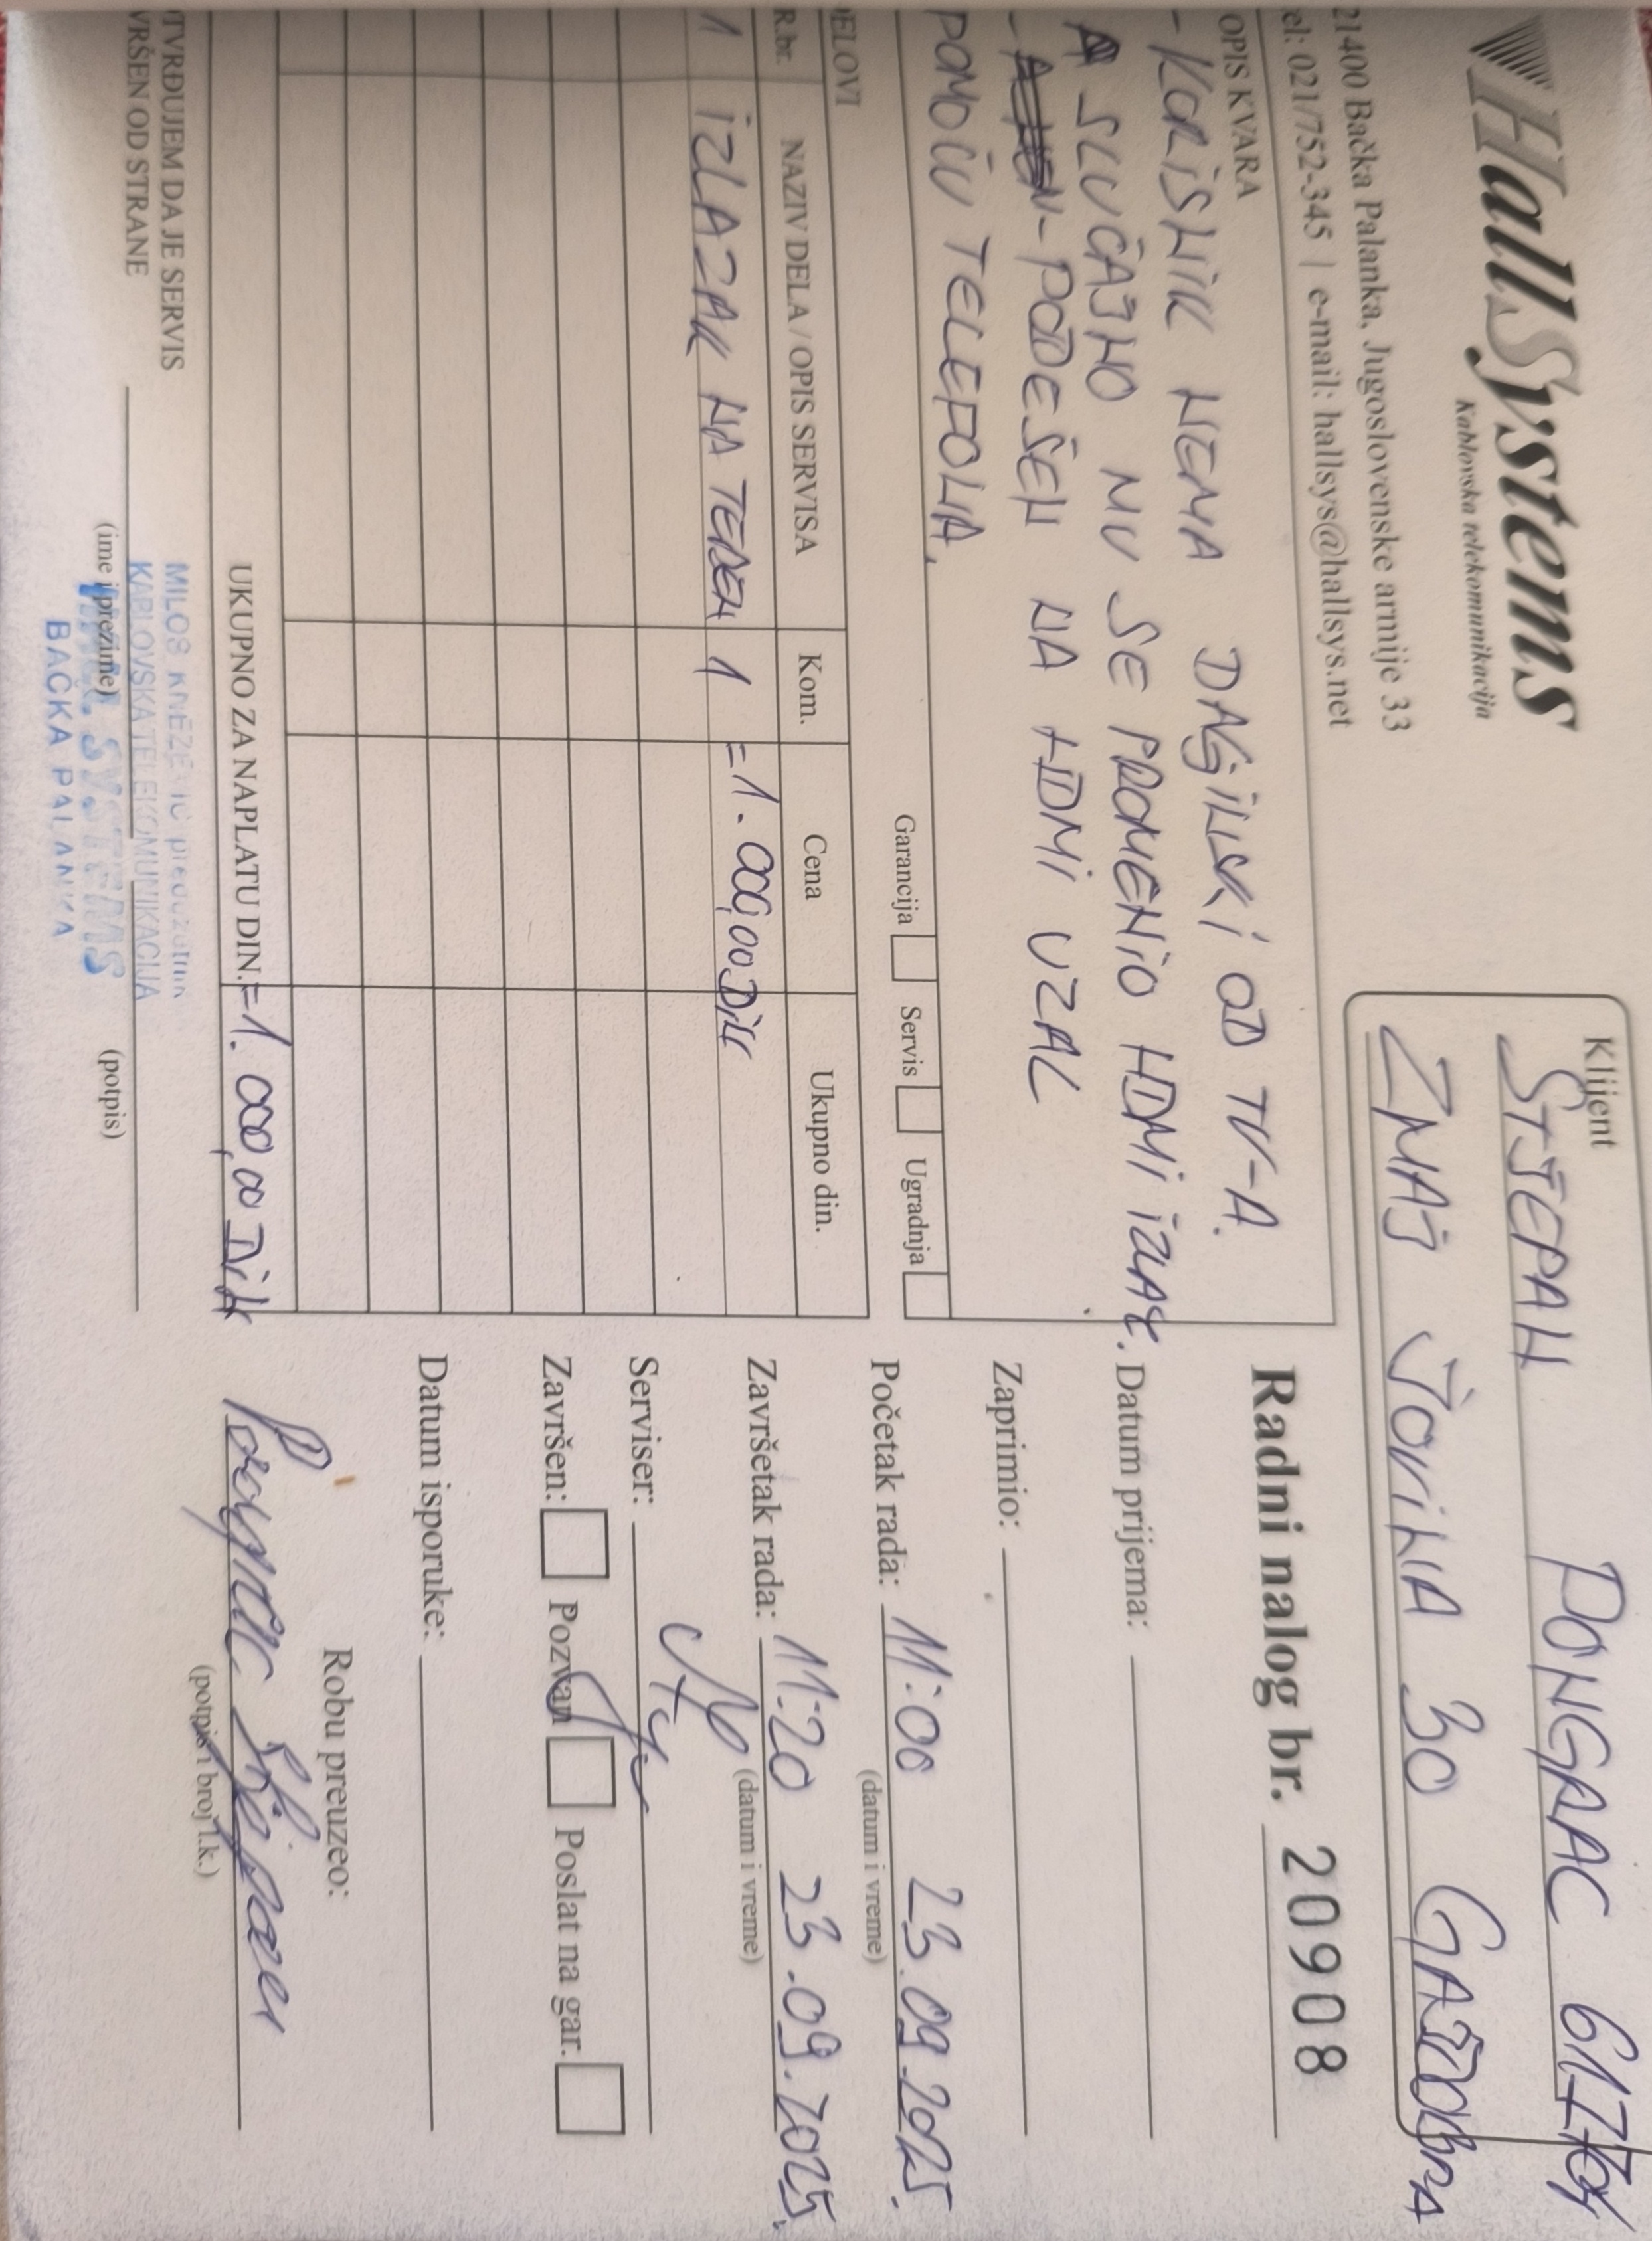 HallSystems
Kablovska telekomunikacija
21400 Bačka Palanka, Jugoslovenske armije 33
el: 021/752-345 | e-mail: hallsys@hallsys.net
Klijent
STJEPAN PONGRAC
ZMAJ JOVINA 30 GAJDOBRA
Radni nalog br. 20908
OPIS KVARA
- KORISNIK NEMA DALJINSKI OD TV-A.
A SLUČAJNO MU SE PROMENIO HDMI IZLAZ.
- PODEŠEN NA HDMI ULAZ
POMOĆU TELEFONA.
Garancija Servis Ugradnja
Datum prijema:
Zaprimio:
Početak rada: 11:00 23.09.2025.
(datum i vreme)
Završetak rada: 11:20 23.09.2025.
(datum i vreme)
Serviser:
Završen: Pozvan Poslat na gar.
Datum isporuke:
Robu preuzeo:
Pongrac Stjepan
(potpis i broj l.k.)
DELOVI
R.br. NAZIV DELA / OPIS SERVISA Kom. Cena Ukupno din.
1 IZLAZAK NA TEREN 1 =1.000,00 DIN
UKUPNO ZA NAPLATU DIN. =1.000,00 DIN
OTVRĐUJEM DA JE SERVIS
VRŠEN OD STRANE
(ime i prezime) (potpis)
KABLOVSKA TELEKOMUNIKACIJA
SYSTEMS
BAČKA PALANKA